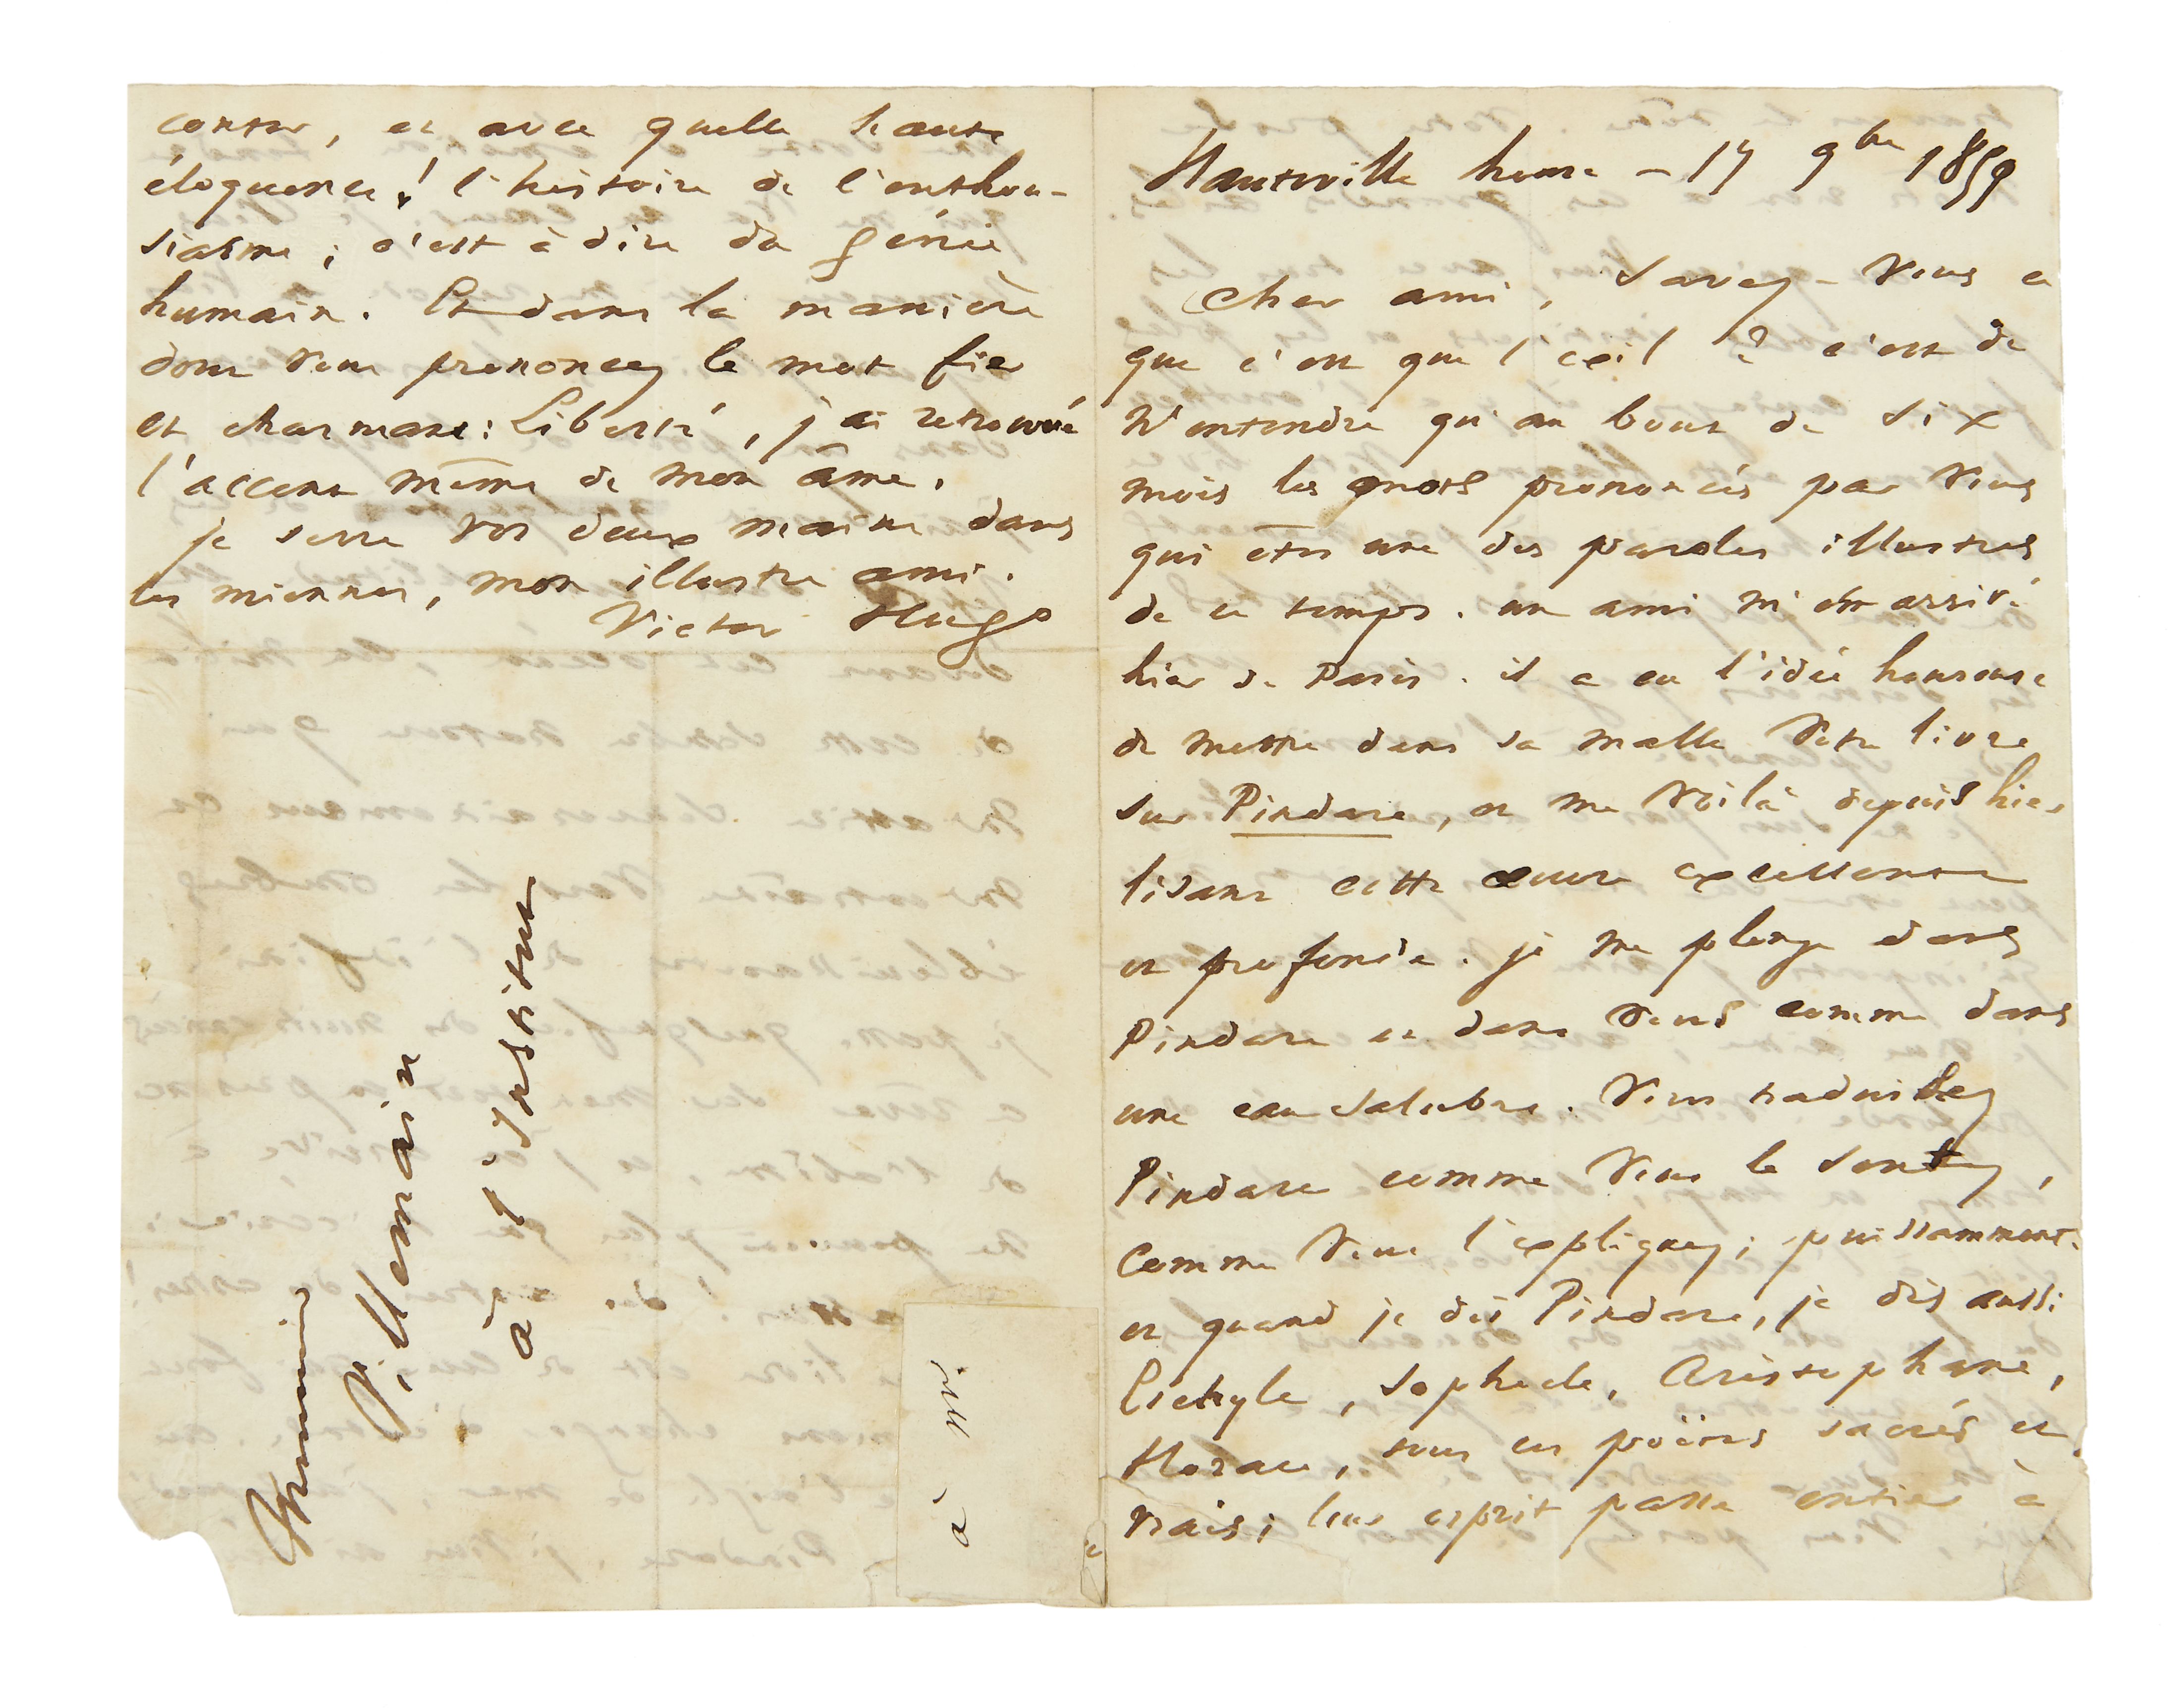 Hauteville house – 17 9bre 1859
Cher ami, savez-vous ce
que c'est que l'exil ? c'est de
n'entendre qu'au bout de six
mois les mots prononcés par vous
qui êtes une des paroles illustres
de ce temps. un ami m'est arrivé
hier de Paris. il a eu l'idée heureuse
de mettre dans sa malle votre livre
sur Pindare, et me voilà depuis hier
lisant cette œuvre excellente
et profonde. je me plonge dans
Pindare et dans vous comme dans
une eau salubre. Vous traduisez
Pindare comme vous le sentez,
comme vous l'expliquez ; puissamment.
et quand je dis Pindare, je dis aussi
Eschyle, Sophocle, Aristophane,
Horace, tous ces poëtes sacrés et
vrais ; leur esprit passe entier à
conter, et avec quelle haute
éloquence ! l'histoire de l'enthou-
siasme ; c'est à dire du génie
humain. Et dans la manière
dont vous prononcez le mot fier
et charmant : Liberté, j'ai retrouvé
l'accent même de mon âme.
je serre vos deux mains dans
les miennes, mon illustre ami.
Victor Hugo
à Mr.
Villemain
à l'Institut